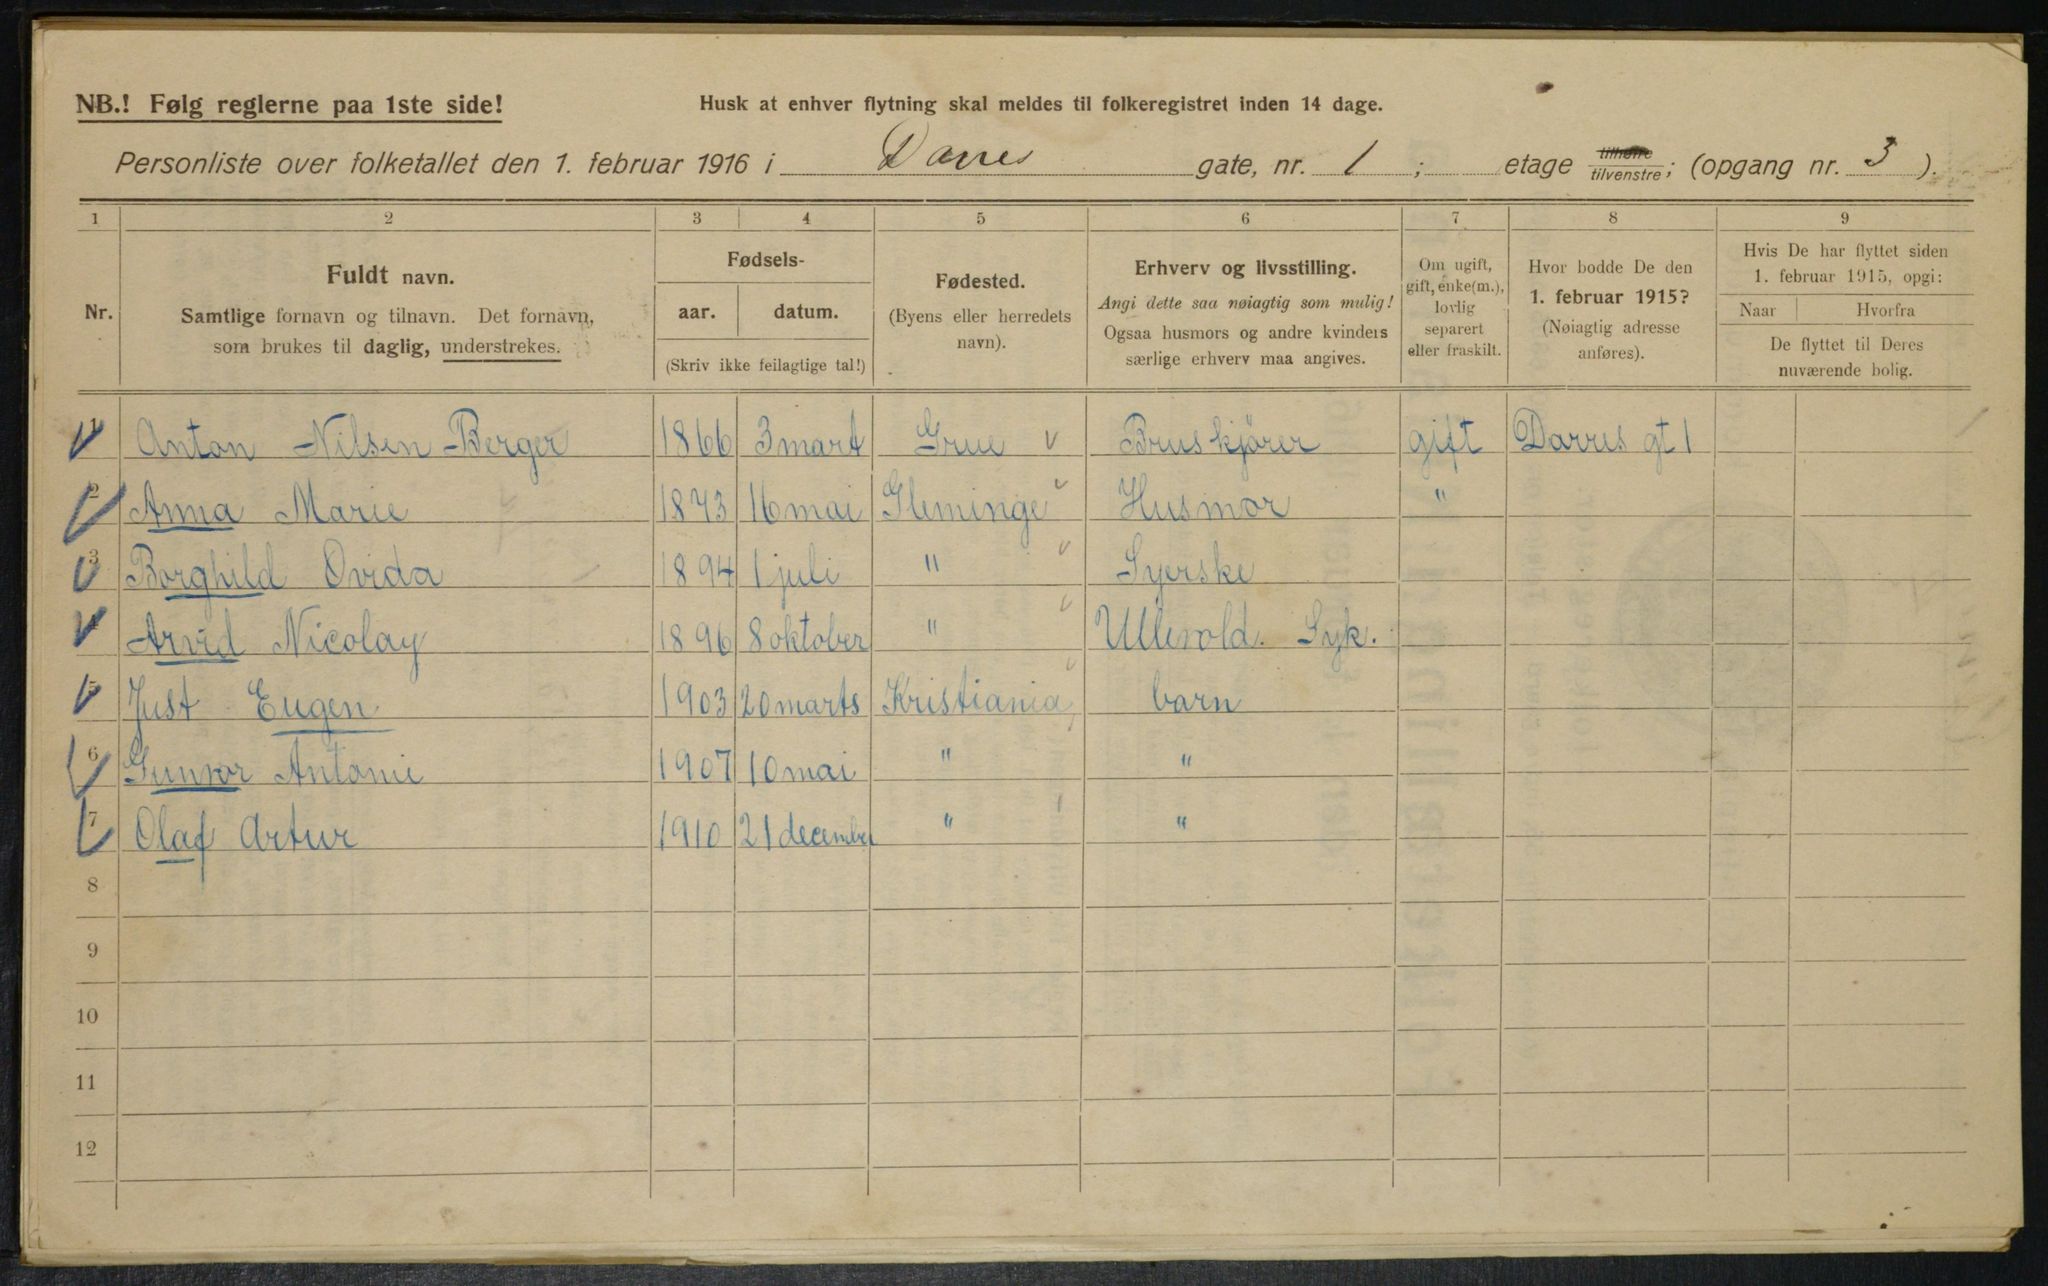 NB.! Følg reglerne paa 1ste side!
Husk at enhver flytning skal meldes til folkeregistret inden 14 dage.
Personliste over folketallet den 1. februar 1916 i Darres gate, nr. 1 ; etage tilhøire tilvenstre; (opgang nr. 3 ).
1 2 3 4 5 6 7 8 9
Nr.
Fuldt navn.
Samtlige fornavn og tilnavn. Det fornavn,
som brukes til daglig, understrekes.
Fødsels-
aar. datum.
(Skriv ikke feilagtige tal!)
Fødested.
(Byens eller herredets
navn).
Erhverv og livsstilling.
Angi dette saa nøiagtig som mulig!
Ogsaa husmors og andre kvinders
særlige erhverv maa angives.
Om ugift,
gift, enke(m.),
lovlig
separert
eller fraskilt.
Hvor bodde De den
1. februar 1915?
(Nøiagtig adresse
anføres).
Hvis De har flyttet siden
1. februar 1915, opgi:
Naar Hvorfra
De flyttet til Deres
nuværende bolig.
1 Anton Nilsen Berger 1866 3 mart Grue Bruskjører gift Darres gt 1
2 Anna Marie 1873 16 mai Gleminge Husmor "
3 Borghild Ovida 1894 1 juli " Syerske
4 Arvid Nicolay 1896 8 oktober " Ullevold. Syk.
5 Just Eugen 1903 20 marts Kristiania barn
6 Gunvor Antonie 1907 10 mai " "
7 Olaf Artur 1910 21 december " "
8
9
10
11
12